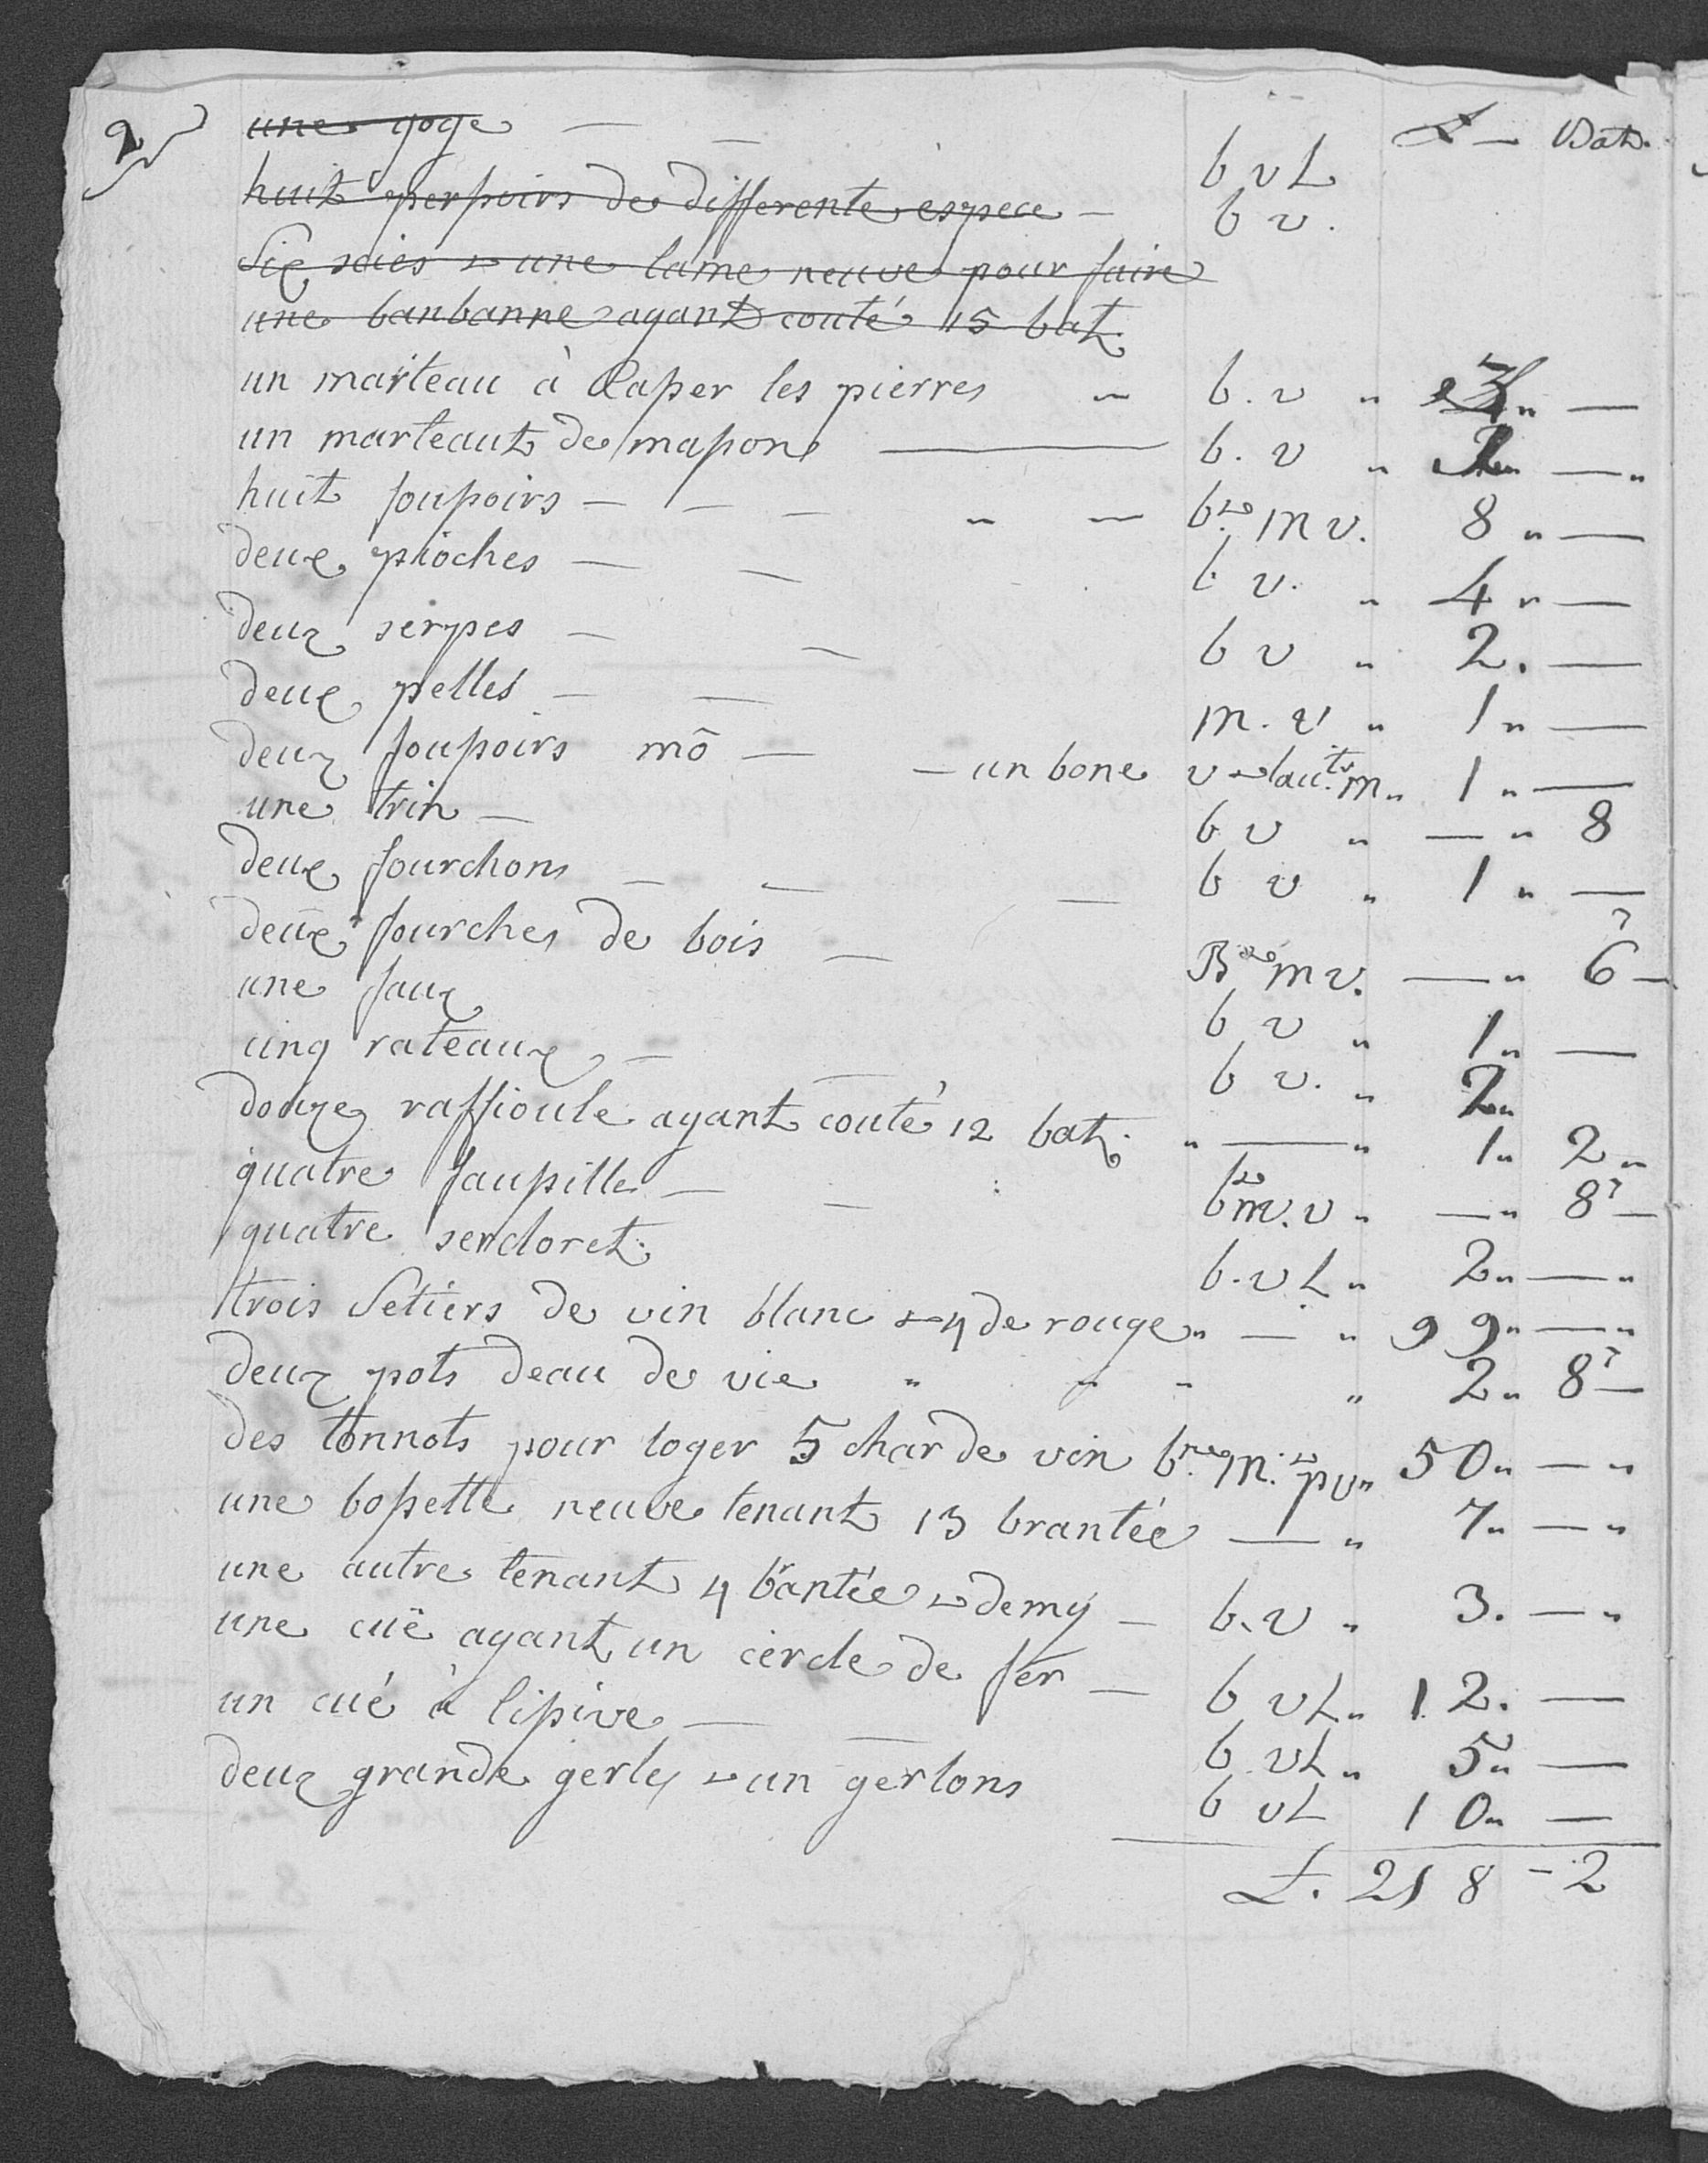 2
une goge — — b v L £ — Batz.
huit perssoirs de differente espece — b v.
Six scies & une lame neuve pour faire
une banbanne ayant couté 15 batz.
un marteau à Caper les pierres „ b. v „ „ —
un marteautz de masson — b. v „ „ — „
huit foussoirs — — — „ — b. & m v. 8 „ —
deux pioches — — b v. „ 4 „ —
deux serpes — — b v „ 2. —
deux pelles — — m. v „ 1 „ —
deux foussoirs mô — — un bone v & lautr. m „ 1 „ —
une trin — b v „ — „ 8
deux fourchons — — — b v „ 1 „ —
deux fourches de bois — B & m v. — „ 6 —
une faux b v „ 1 „ —
cinq rateaux — — b v. „ 2 „
douze raffioule ayant couté 12 batz. „ — „ 1 „ 2 „
quatre faussille — — b & m. v „ — „ 8 —
quatre sendoret. b. v L „ 2 „ — „
trois Setiers de vin blanc & 4 de rouge „ — „ 99 „ — „
deux pots deau de vie „ „ „ „ 2 „ 8 —
des tonnots pour loger 5 char de vin b. & m. & p v „ 50 „ — „
une bossette neuve tenant 13 brantée — „ 7 „ — „
une autre tenant 4 brantée & demy — b. v „ 3. — „
une cuë ayant un cercle de fer — b v L „ 12. —
un cué à lissive — — b v L „ 5 „ —
deux grande gerles & un gerlons b v L 10 „ —
£. 218 - 2